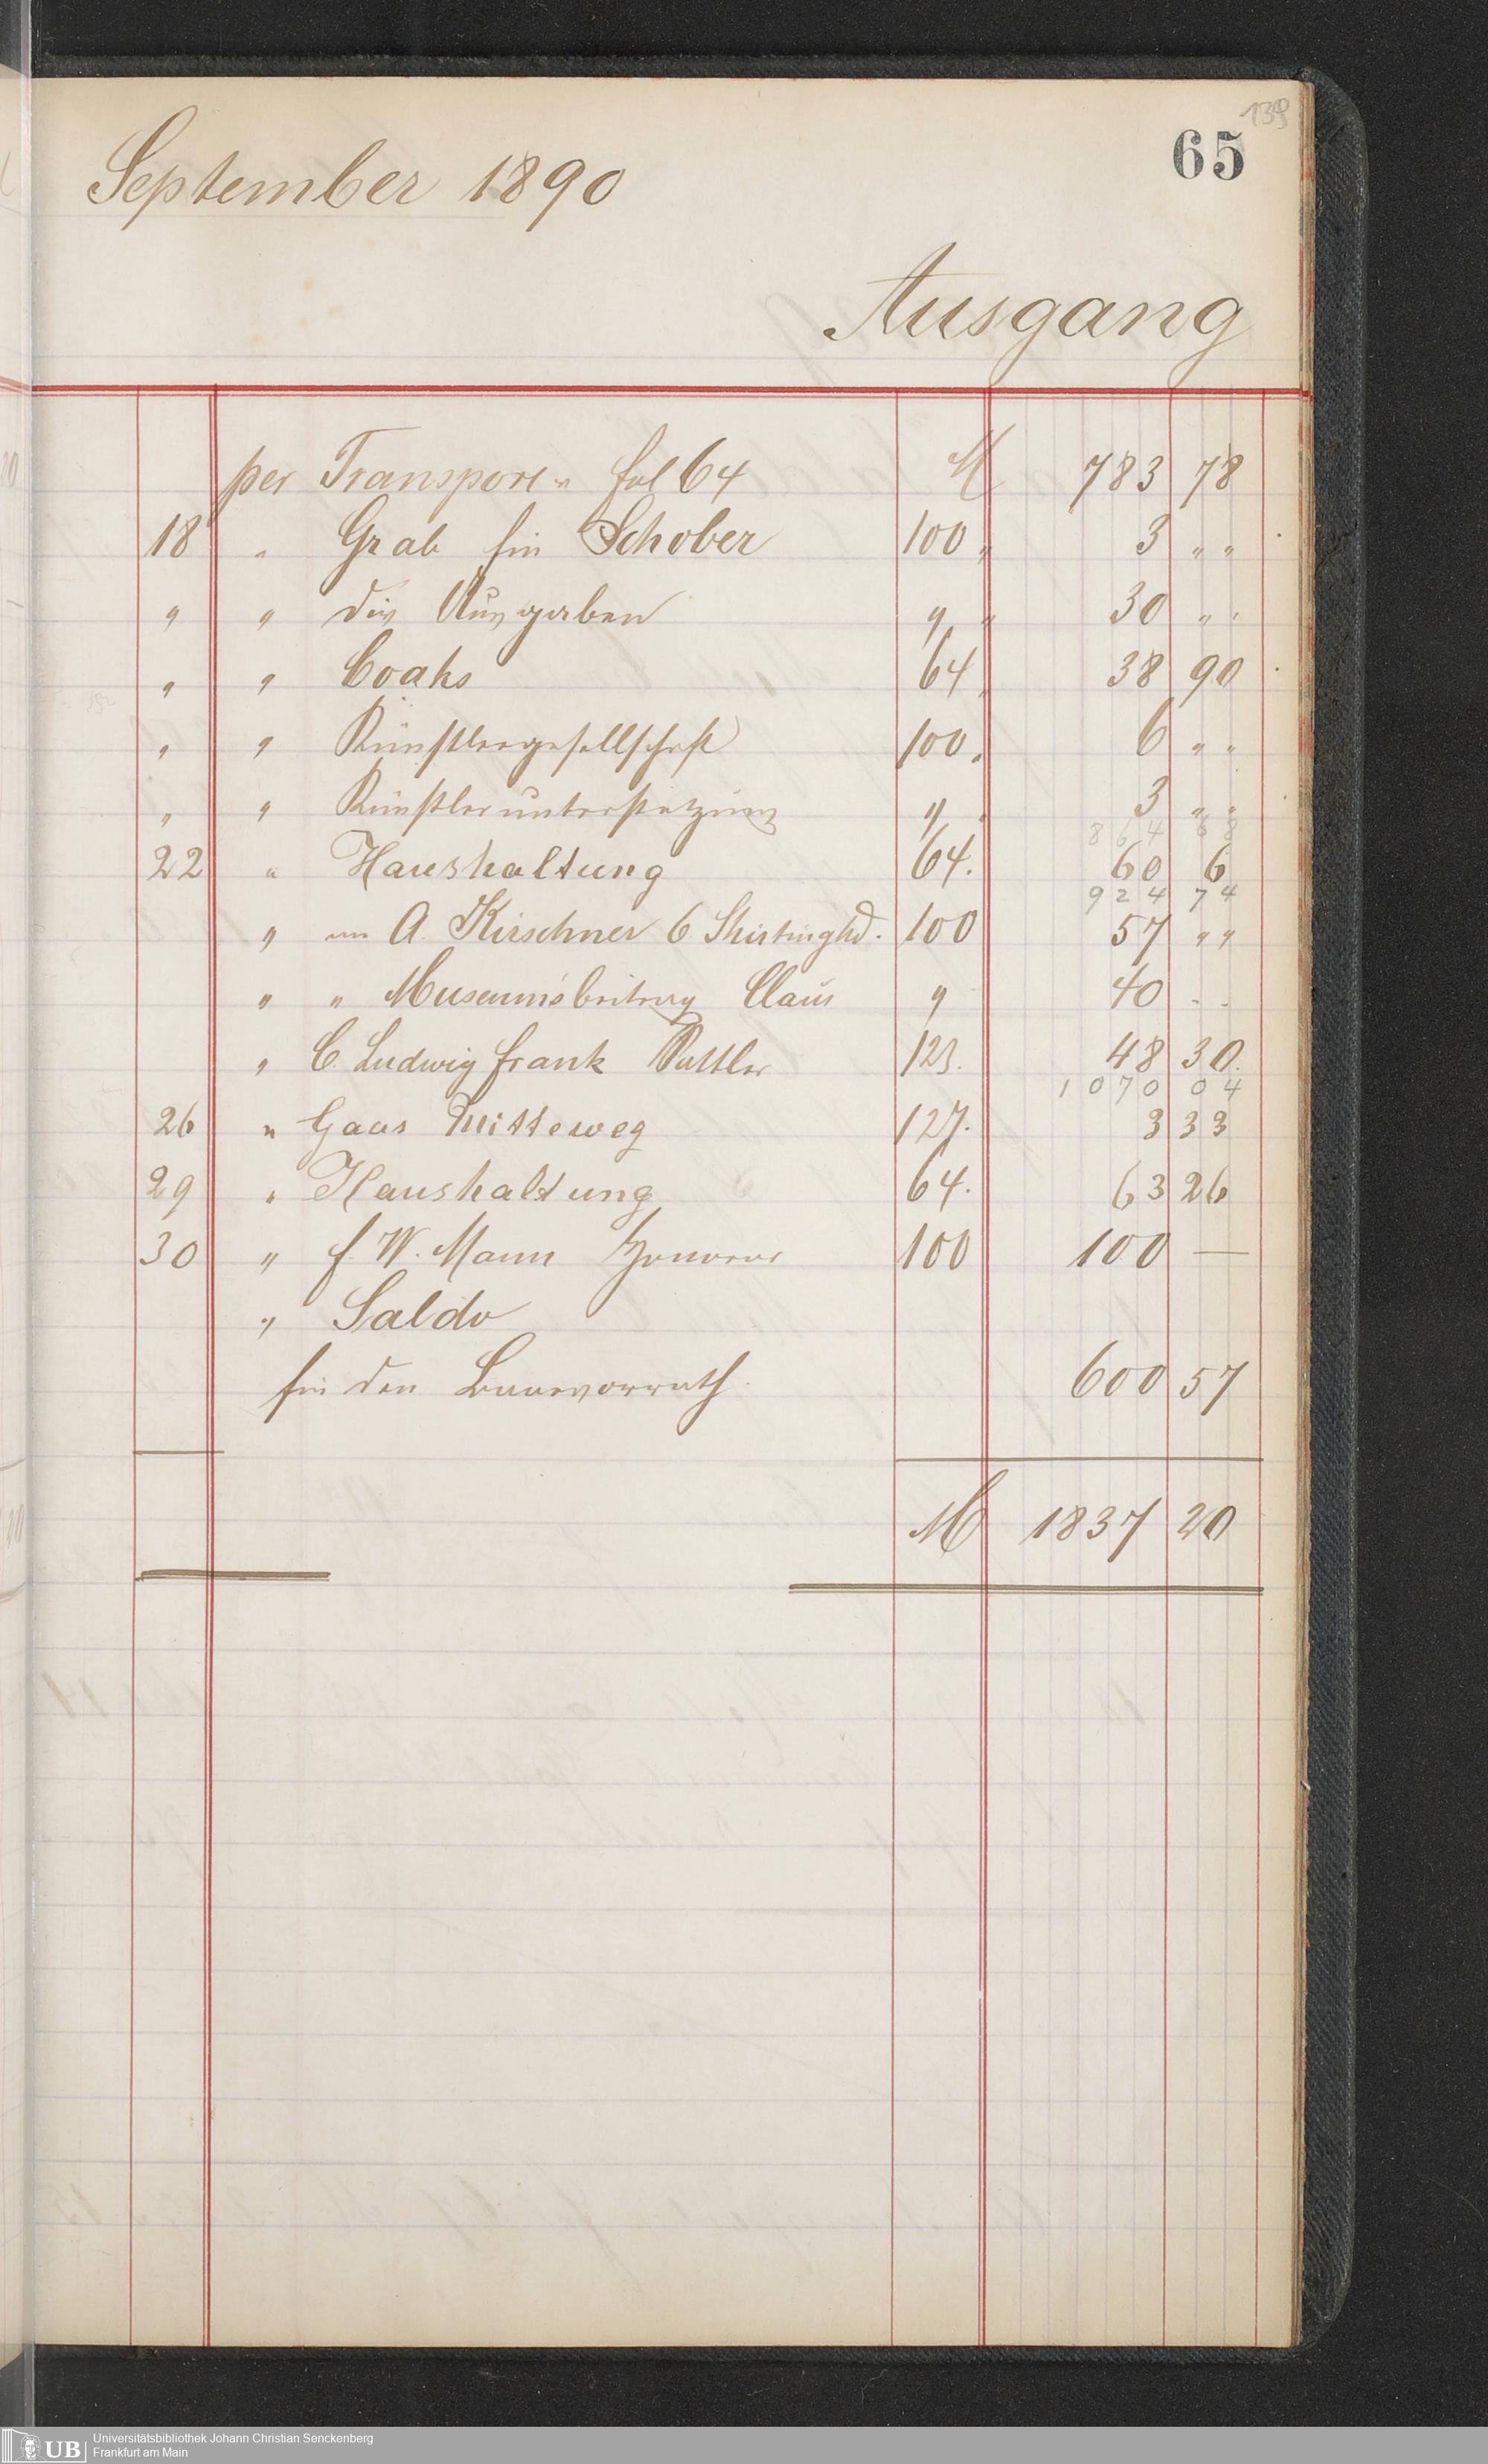 139
65
September 1890
Ausgang
per Transport " fol 64 M 783 78
18 " Grab für Schober 100 " 3 " "
" " div Ausgaben " " 30 " "
" " Coaks 64 " 38 90
" " Künstlergesellschaft 100 " 6 " "
" " Künstlerunterstützung " " 3 " "
864 68
22 " Haushaltung 64. 60 6
924 74
" an A. Kirschner 6 100 57 " "
" " Museumsbeitrag Claus " 40 " "
" C. Ludwig Frank Sattler 123. 48 30.
1070 04
26 " Gaas Mitteweg 127. 3 33
29 " Haushaltung 64. 63 26
30 " f. W. Mann Honorar 100 100 —
" Saldo
für den Baarvorrath 600 57
M 1837 20
UB Universitätsbibliothek Johann Christian Senckenberg
Frankfurt am Main